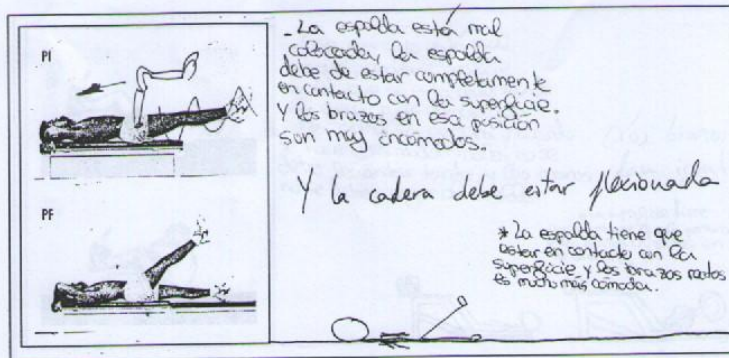 PI
- La espalda está mal
colocada, la espalda
debe de estar completamente
en contacto con la superficie.
Y los brazos en esa posición
son muy incómodos.
Y la cadera debe estar flexionada
PF
* La espalda tiene que
estar en contacto con la
superficie y los brazos rectos
es mucho más cómoda.